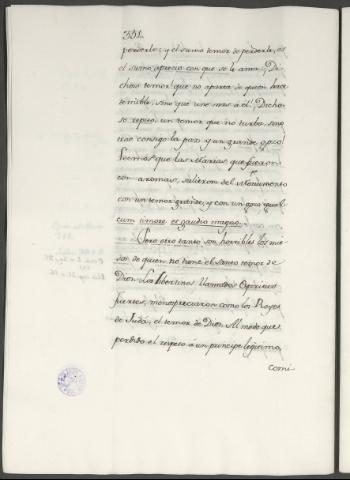 331.
perderle; y el sumo temor de perderle, es
el sumo aprecio con que se le ama. Di-
choso temor! que no aparta de quien hace
temible, sino que une mas á él! Dicho-
so repito, un temor que no turba, sino
trae consigo la paz y un grande gozo!
Leemos que las Marias que fueron
con aromas, salieron del Monumento
con un temor grande, y con un gozo igual:
cum timore et gaudio magno.
Pero otro tanto son horribles los mie-
dos de quien no tiene el santo temor de
Dios. Los libertinos llamados Espiritus
fuertes, menospreciaron como los Reyes
de Judá, el temor de Dios. Al modo que
perdido el respeto á un principe legitimo,
comi